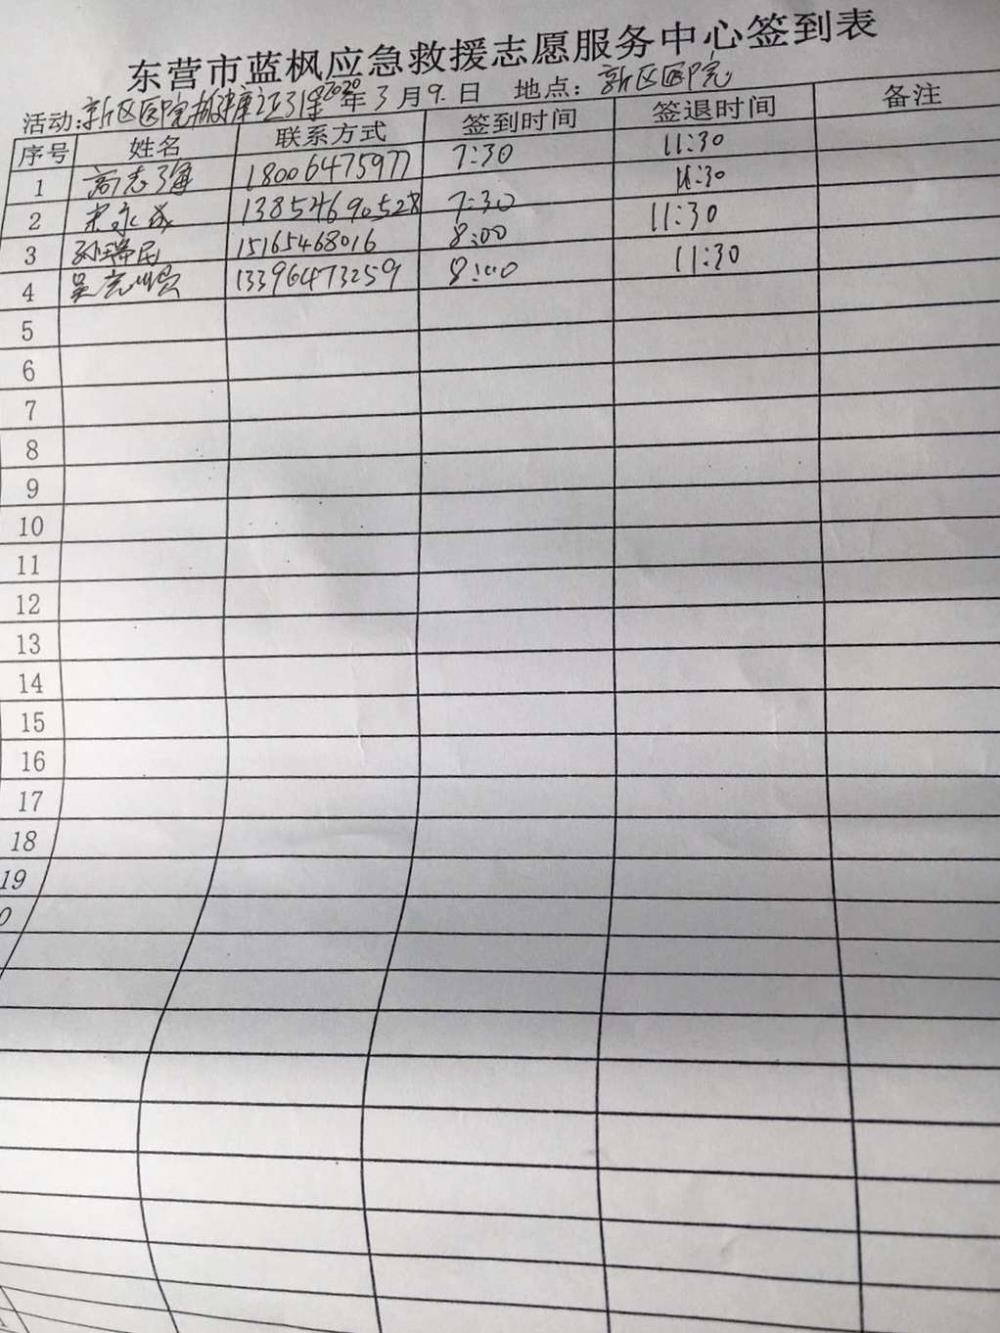 东营市蓝枫应急救援志愿服务中心签到表
活动:新区医院 2020年3月9日 地点:新区医院
序号 姓名 联系方式 签到时间 签退时间 备注
1 高志 18006475977 7:30 11:30
2 宋永 13854690528 7:30 11:30
3 孙瑞民 15165468016 8:00 11:30
4 吴 13396473259 8:00 11:30
5
6
7
8
9
10
11
12
13
14
15
16
17
18
19
0